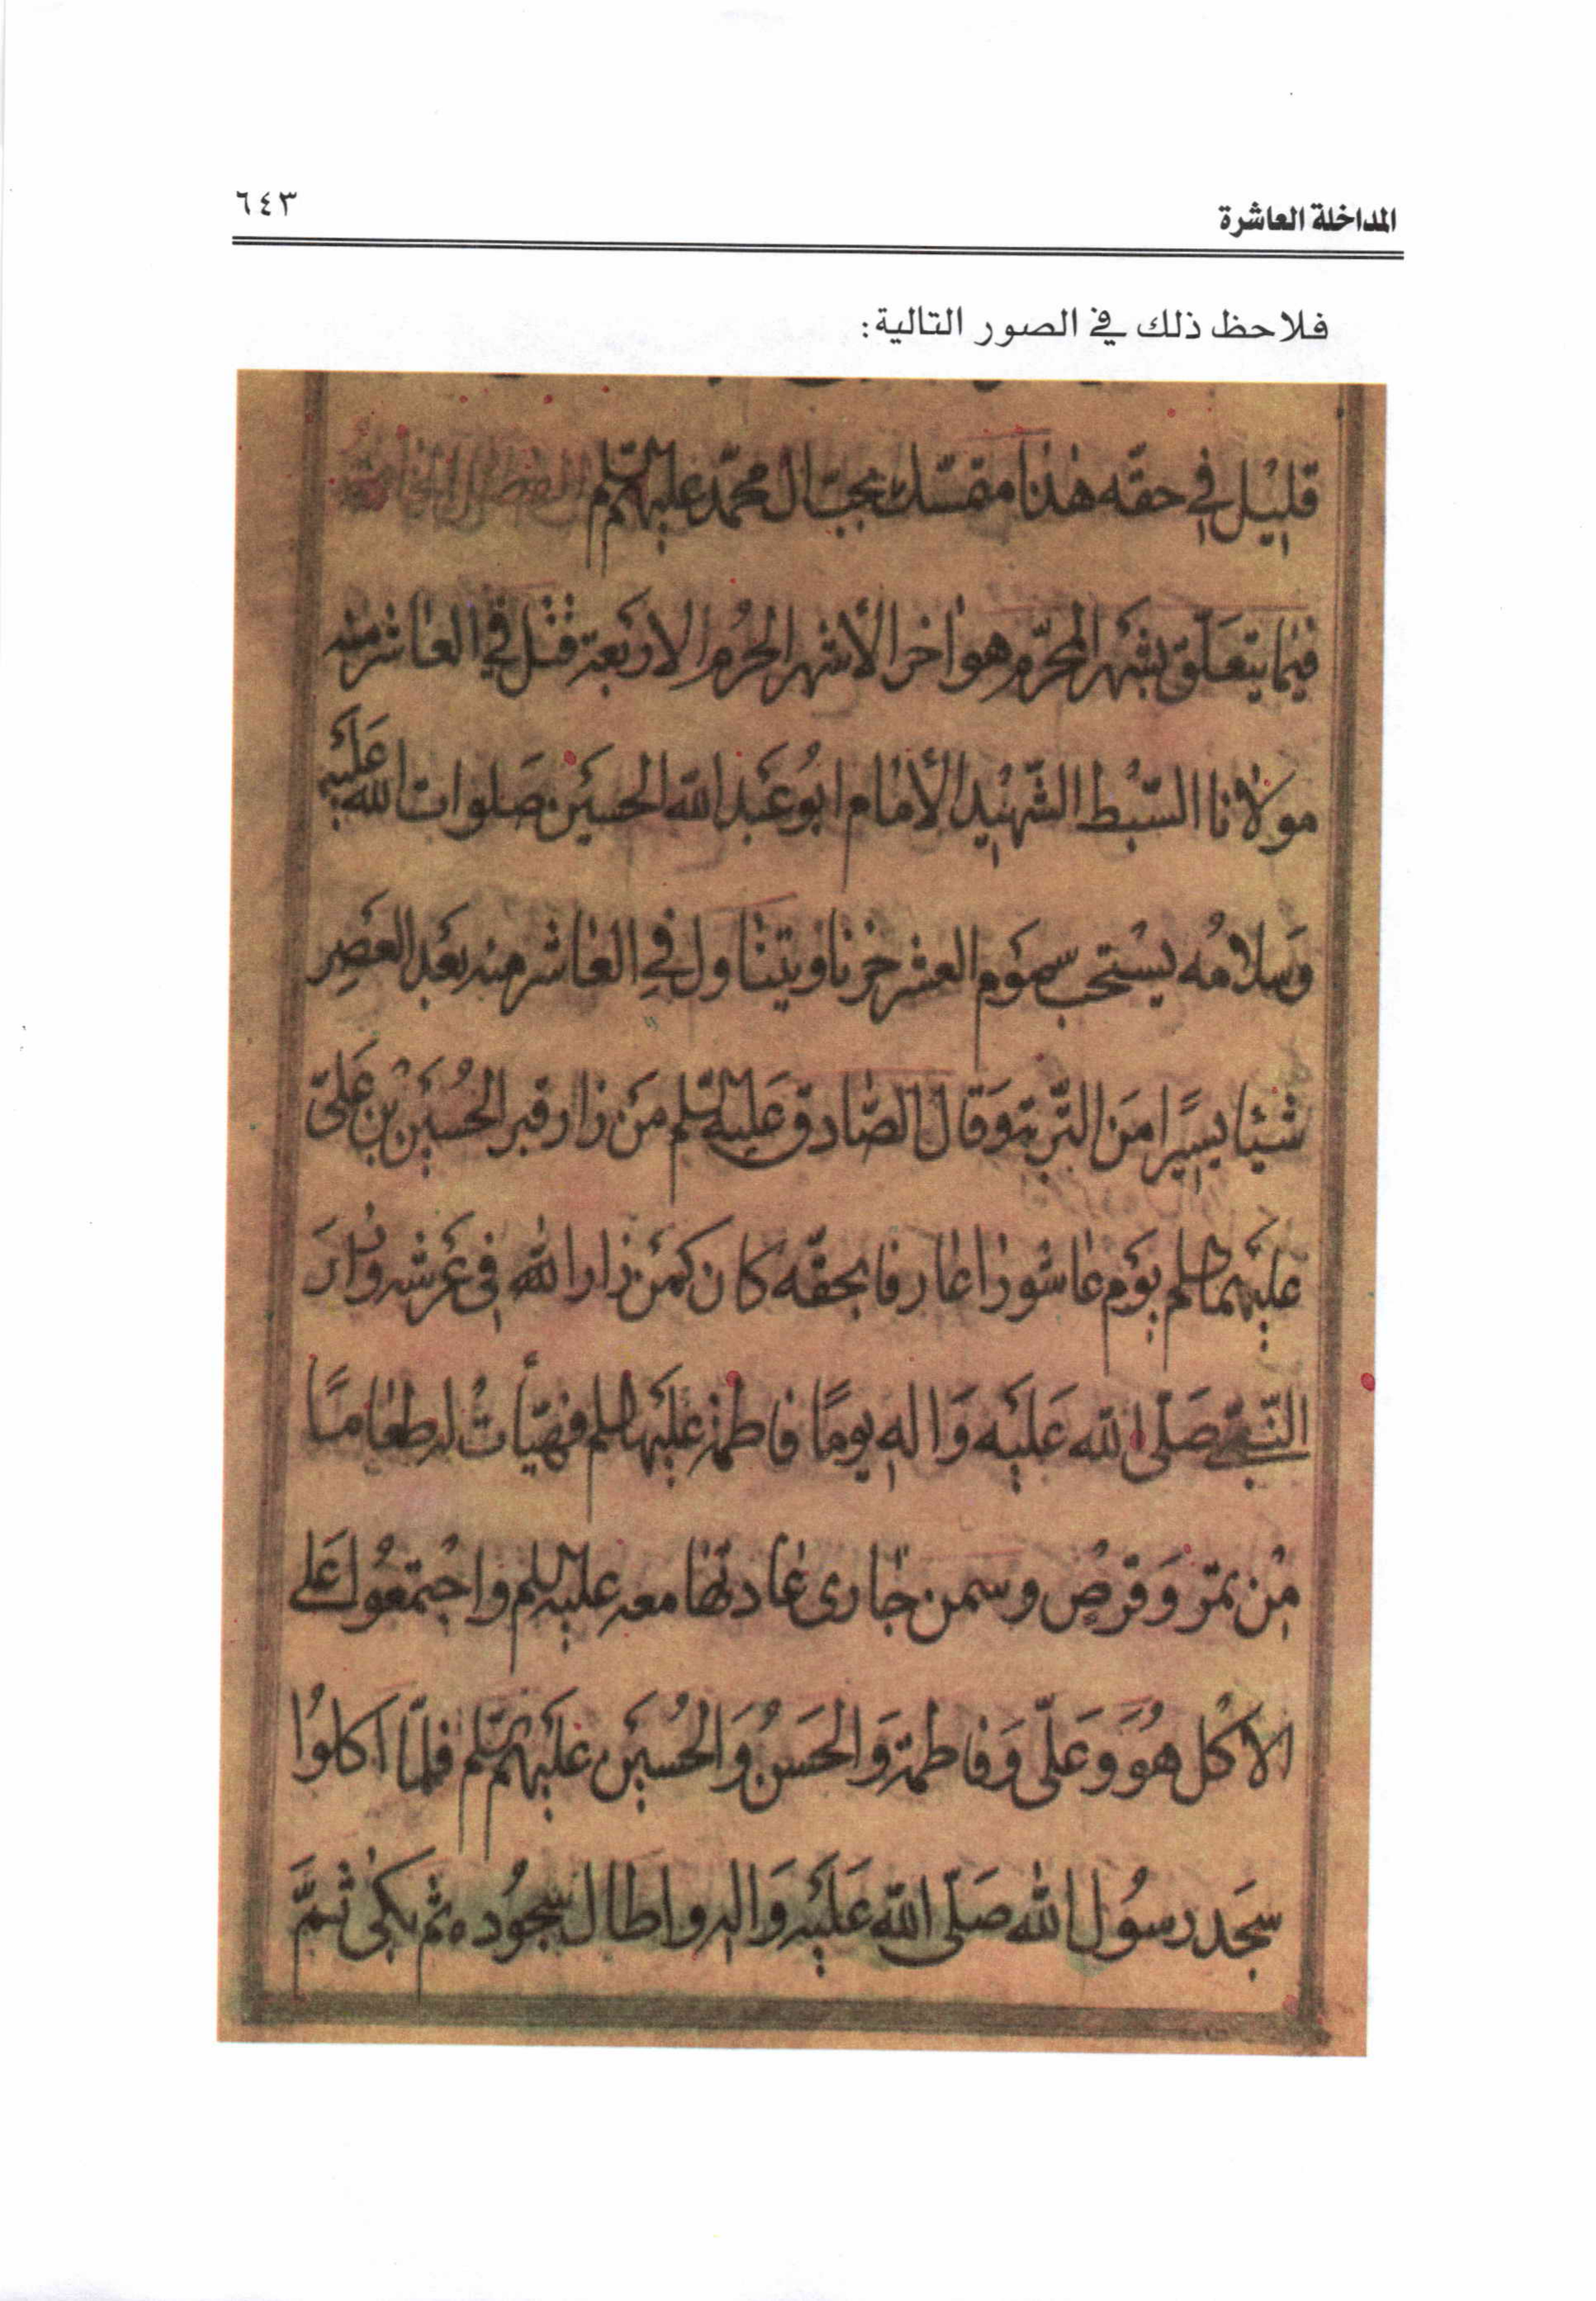 المداخلة العاشرة
٦٤٣
فلاحظ ذلك في الصور التالية:
قليل في حقه هذا متمسك بحب ال محمد عليهم السلم الفصل الخامس
فيما يتعلق بشهر المحرم وهو اخر الأشهر الحرم الاربعة قتل في العاشر منه
مولانا السبط الشهيد الأمام ابو عبد الله الحسين صلوات الله عليه
وسلامه يستحب صوم العشر حزنا ويتناول في العاشر منه بعد العصر
شيئا يسيرا من التربة وقال الصادق عليه السلم من زار قبر الحسين بن علي
عليهما السلم يوم عاشورا عارفا بحقه كان كمن زار الله في عرشه وزار
النبي صلى الله عليه واله يوما فاطمة عليها السلم فهيأت له طعاما
من تمر وقرص وسمن جاري عادتها معه عليه السلم واجتمعوا على
الاكل هو وعلي وفاطمة والحسن والحسين عليهم السلم فلما اكلوا
سجد رسول الله صلى الله عليه واله واطال سجوده ثم بكى ثم